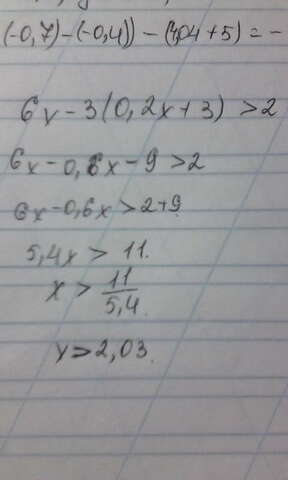 (-0,7)-(-0,4))-(3,04+5)=-
6x-3(0,2x+3)>2
6x-0,6x-9>2
6x-0,6x>2+9
5,4x>11.
x>11/5,4
x>2,03.